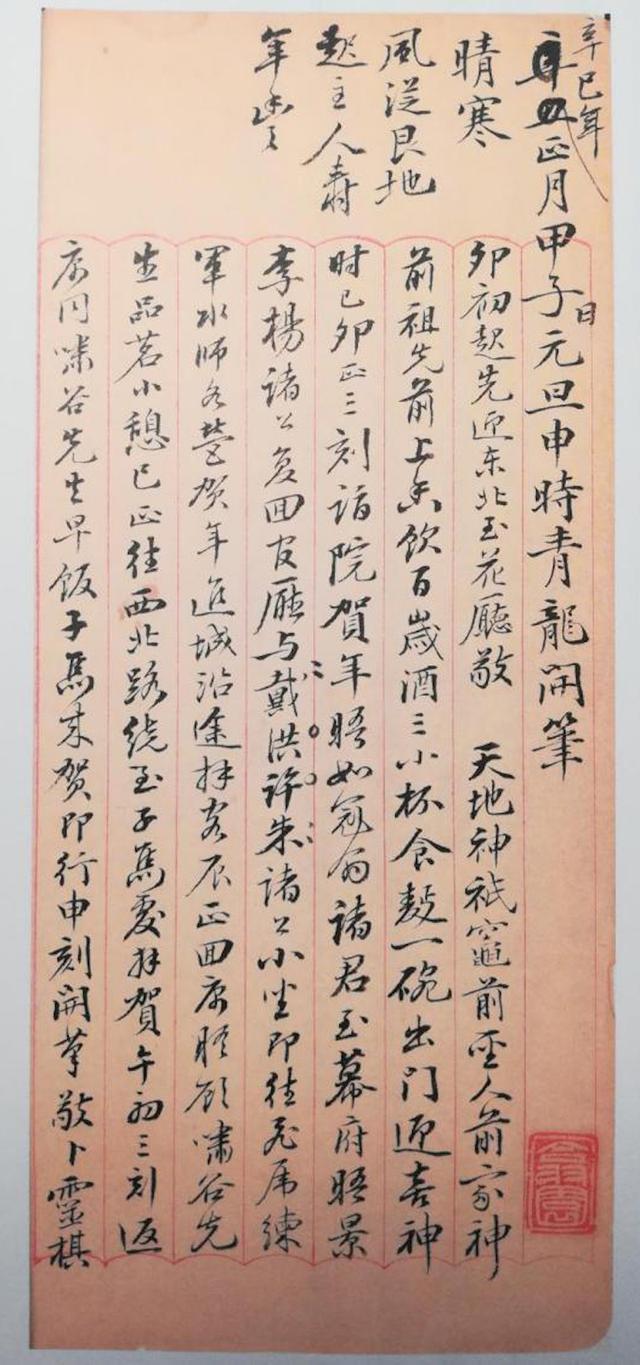 辛巳年
正月甲子日元旦申時青龍開筆
晴寒
風從艮地
起主人壽
年豐
卯初起先迎东北至花廳敬 天地神祇竈前聖人前家神
前祖先前上香飲百歲酒三小杯食麵一碗出門迎喜神
时已卯正三刻詣院賀年晤如冠翁諸君至幕府晤景
李楊諸公复回官廳与戴洪许朱諸公小坐即往虎席練
軍水師各營贺年進城沿途拜客辰正回寓晤顧嘯谷先
生品茗小憩巳正往西北路绕至子馬處拜賀午初三刻返
寓同嘯谷先生早饭子馬来贺即行申刻開筆敬卜靈棋